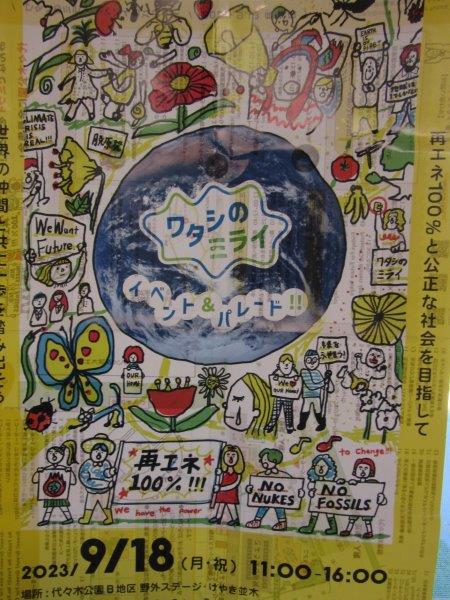 EARTH IS BLUE!
CLIMATE CRISIS IS REAL!!!
脱原発
We Want Future
ワタシの
ミライ
イベント&パレード!!
ワタシの
ミライ
再エネ100%と公正な社会を目指して
OUR HOME
We ♥ OUR Home!
未来をかえよう!
再エネ
100%!!!
We have the power
NO NUKES
NO FOSSILS
to Change!!!
2023/9/18(月・祝) 11:00-16:00
場所:代々木公園B地区 野外ステージ・けやき並木